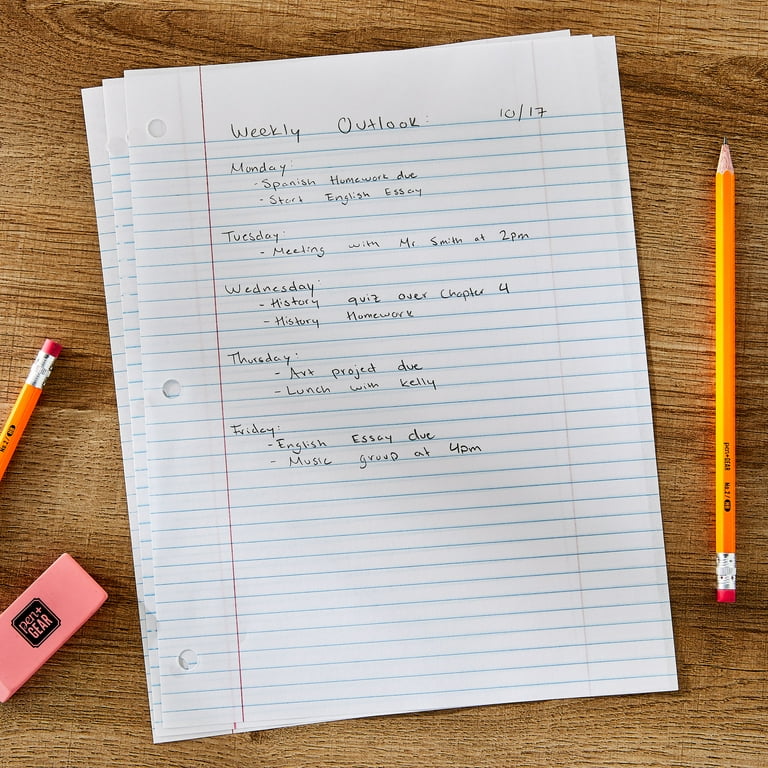 Weekly Outlook: 10/17
Monday:
- Spanish Homework due
- Start English Essay
Tuesday:
- Meeting with Mr Smith at 2pm
Wednesday:
- History quiz over Chapter 4
- History Homework
Thursday:
- Art project due
- Lunch with Kelly
Friday:
- English Essay due
- Music group at 4pm
pen+GEAR No 2/HB
No 2/HB
pen+
GEAR